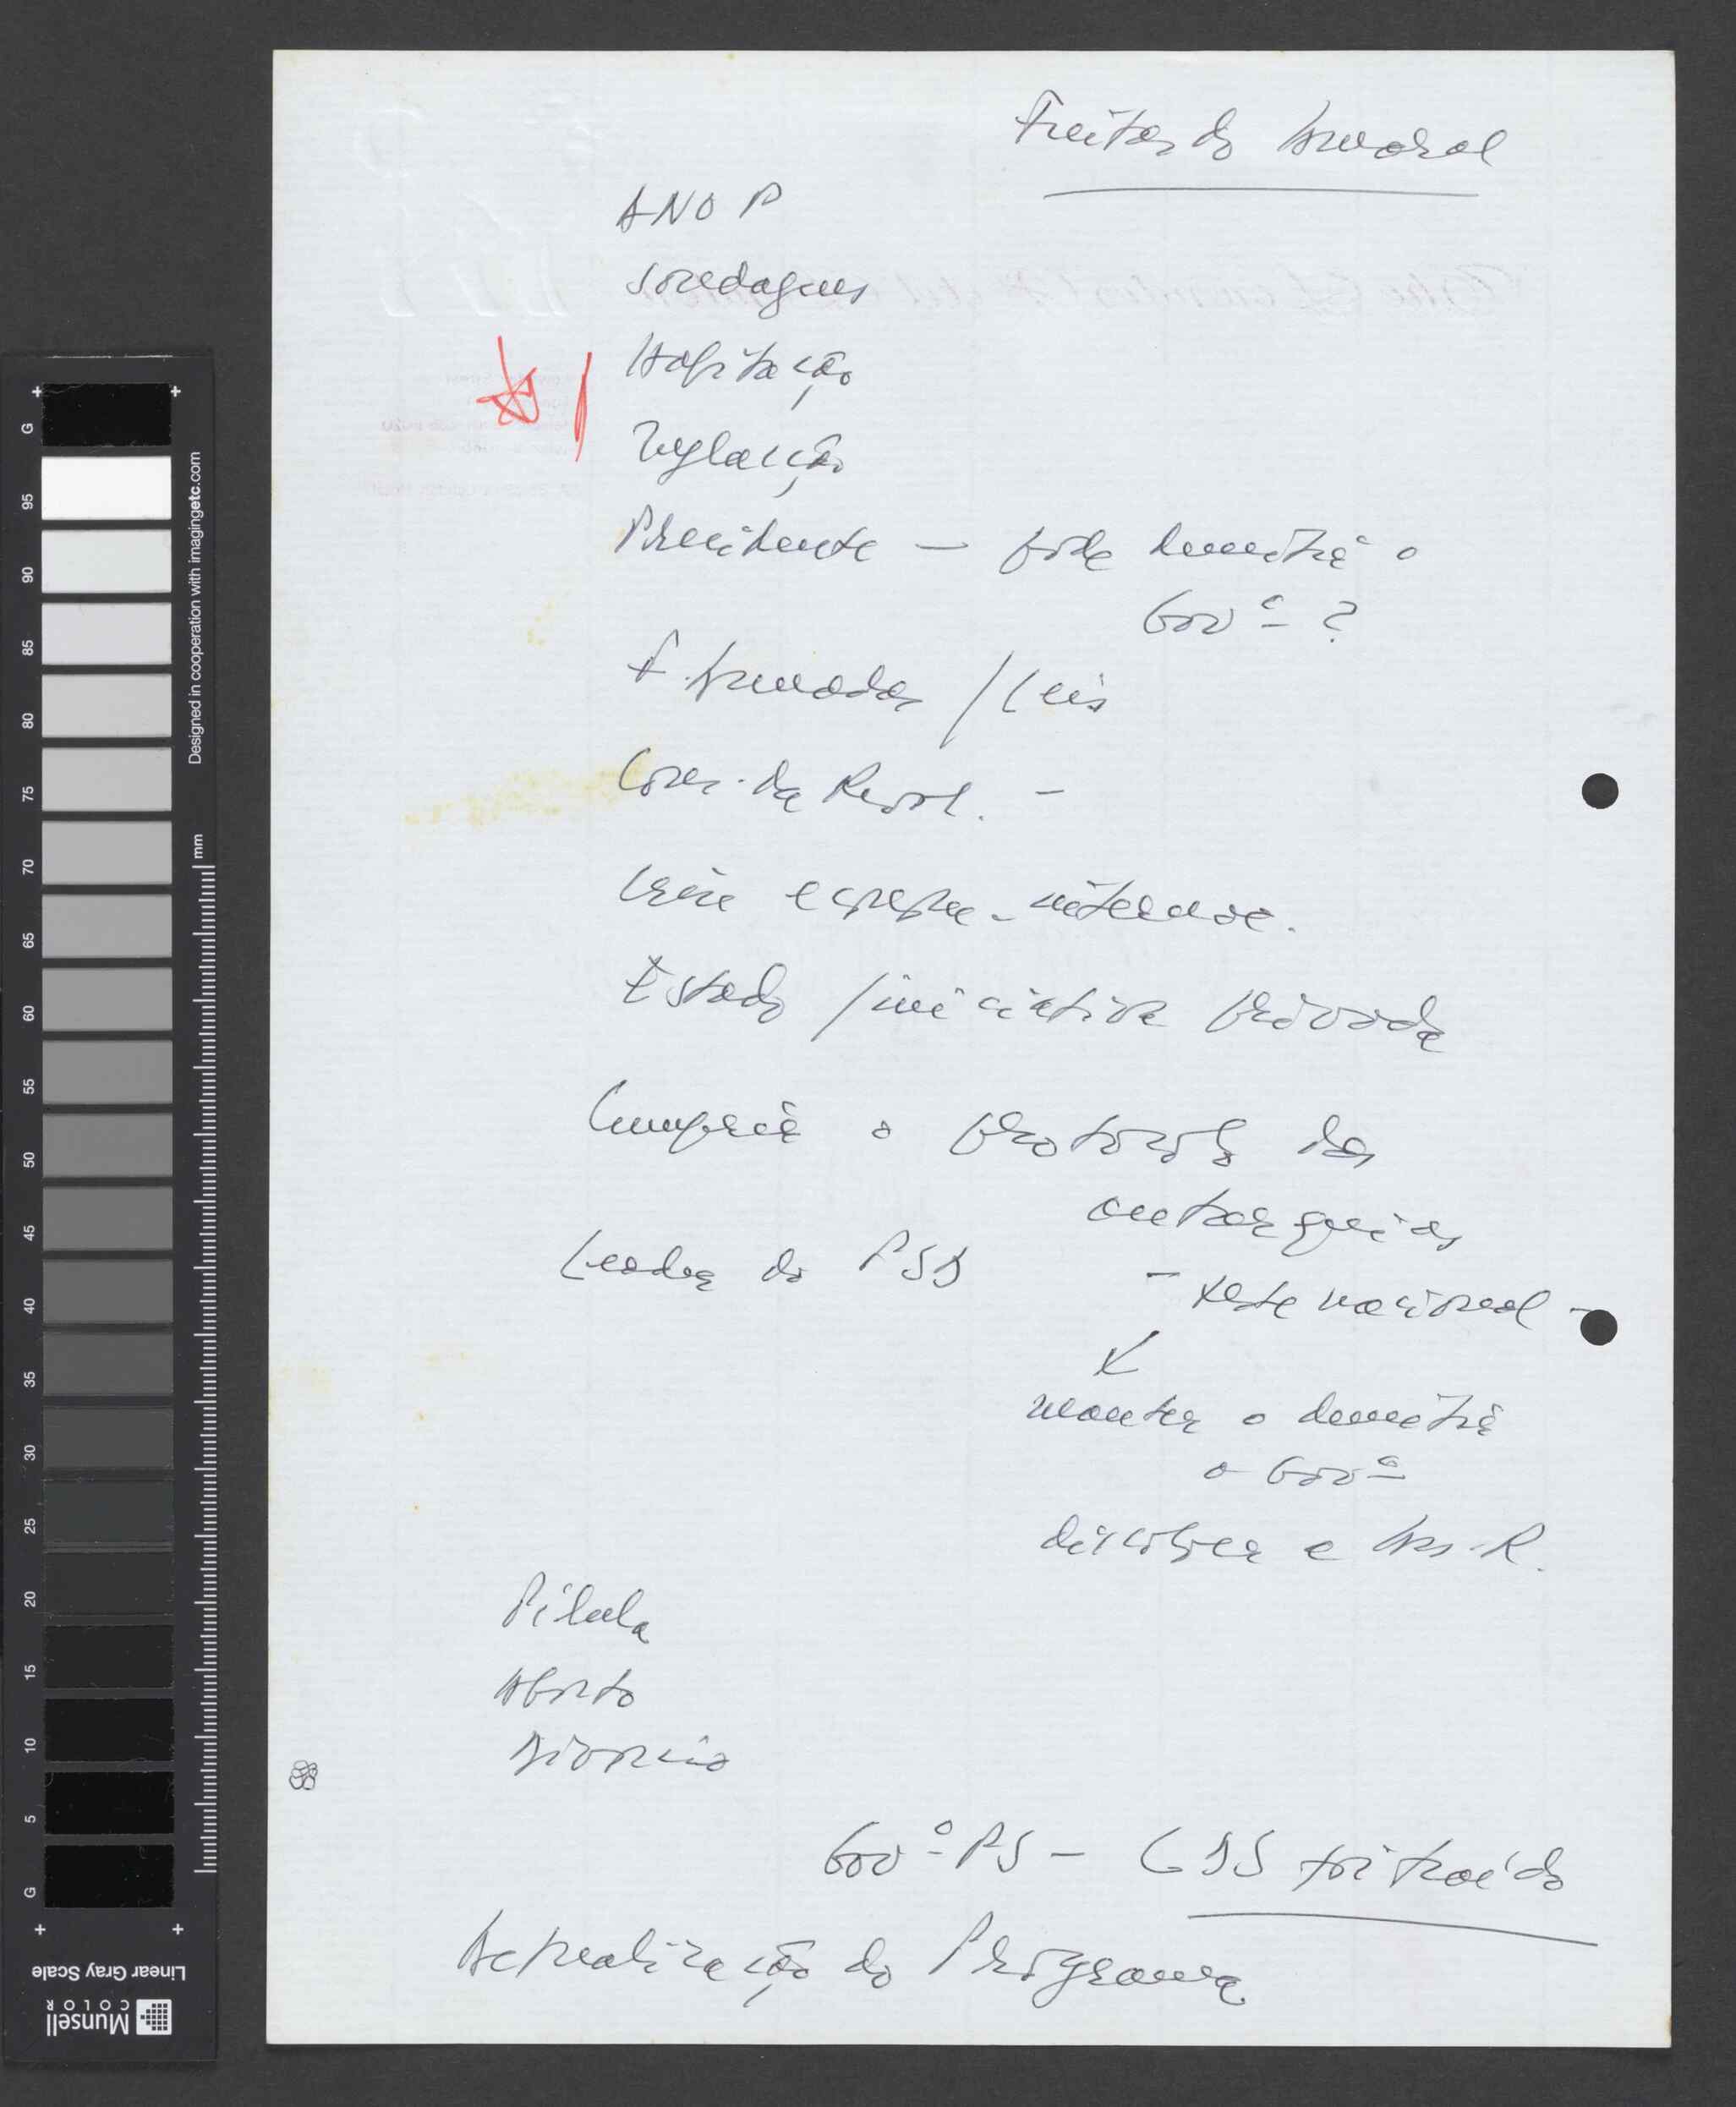 Freitas do Amaral
ANOP
Sondagens
Habitação
Inflação
Presidente — pode demitir o
Govº ?
F. Armadas / Leis
Cons. da Revol. -
Crise econom. internac.
Estado / iniciativa privada
Cumprir o protocolo das
autarquias
Leader do PSD
- teste nacional -
manter o demitir
o Govº
dissolver a Ass. R.
Pílula
Aborto
Divórcio
Govº PS - CDS foi traído
Actualização do Programa
G
95
90
85
80
75
70
65
60
55
50
45
40
35
30
25
20
15
10
5
G
mm
Designed in cooperation with imagingetc.com
Linear Gray Scale
Munsell
COLOR